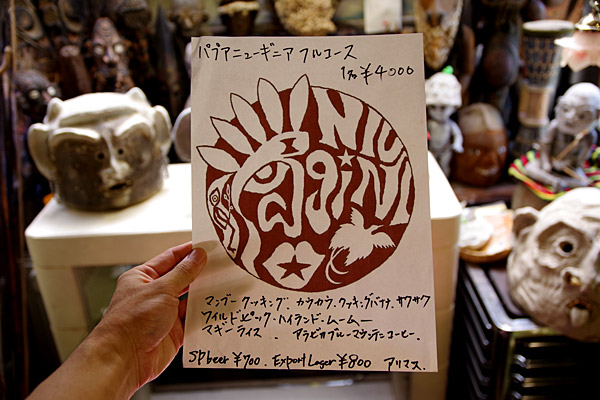 パプアニューギニア フルコース
1人¥4000
NIUGINI
マンブー クッキング、カウカウ、クッキングバナナ、サクサク
ワイルドピック・ハイランド・ムームー
マギーライス、 アラビカブルーマウンテンコーヒー、
SPbeer ¥700. Export Lager ¥800 アリマス.